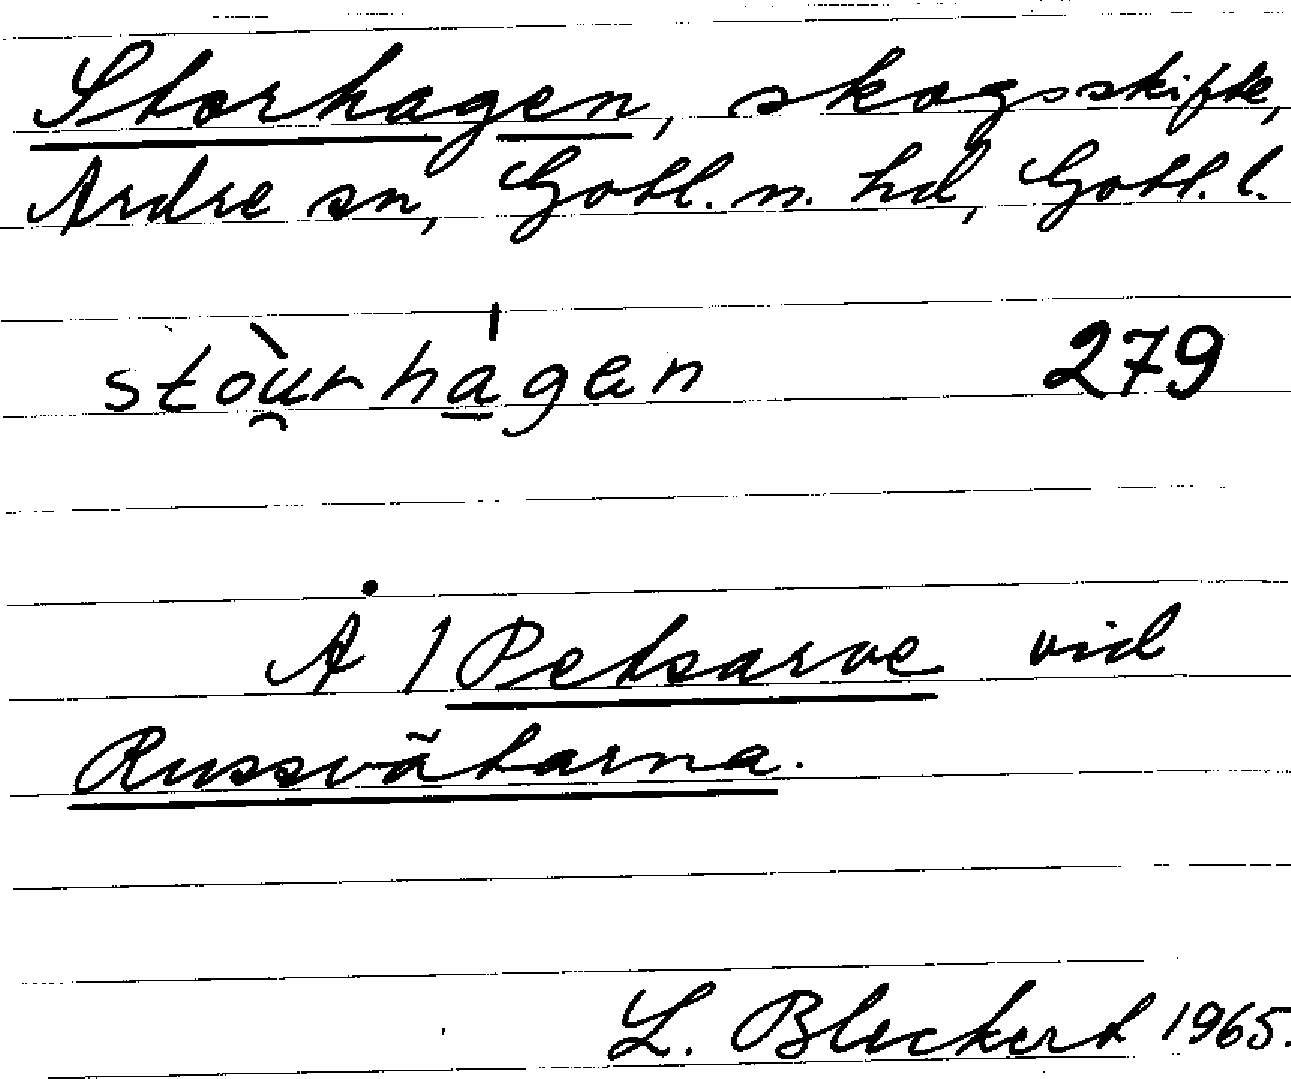 Storhagen, skogsskifte,
Ardre sn, Gotl. n. hd, Gotl. l.
stòu̯rha̲gen 279
Å 1 Petsarve vid
Russvätarna.
L. Bleckert 1965.